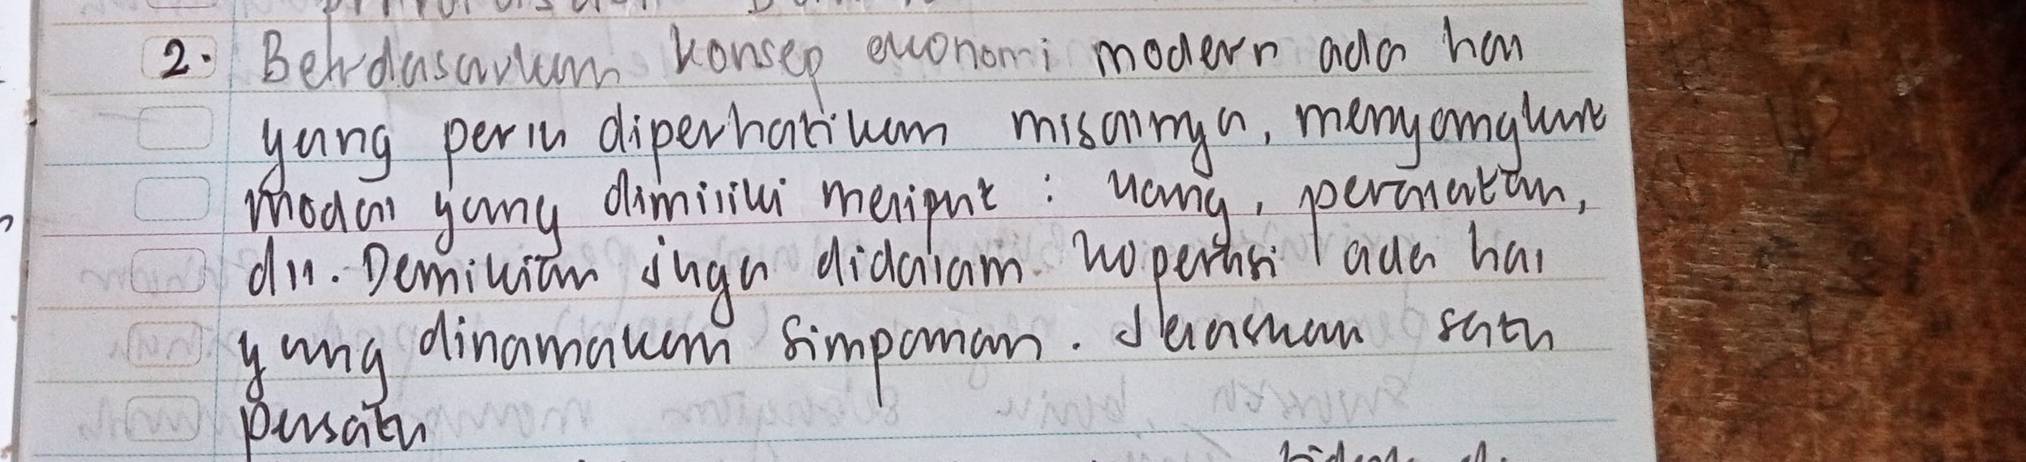 2. Berdasarkan konsep ekonomi modern ada hal
yang perlu diperhatikan misalnya, menyangkut
modal yang dimiliki meliput : uang, permatan,
dll. Demikian juga didalam koperasi ada hal
yang dinamakan simpanan. Jelaskan satu
persatu